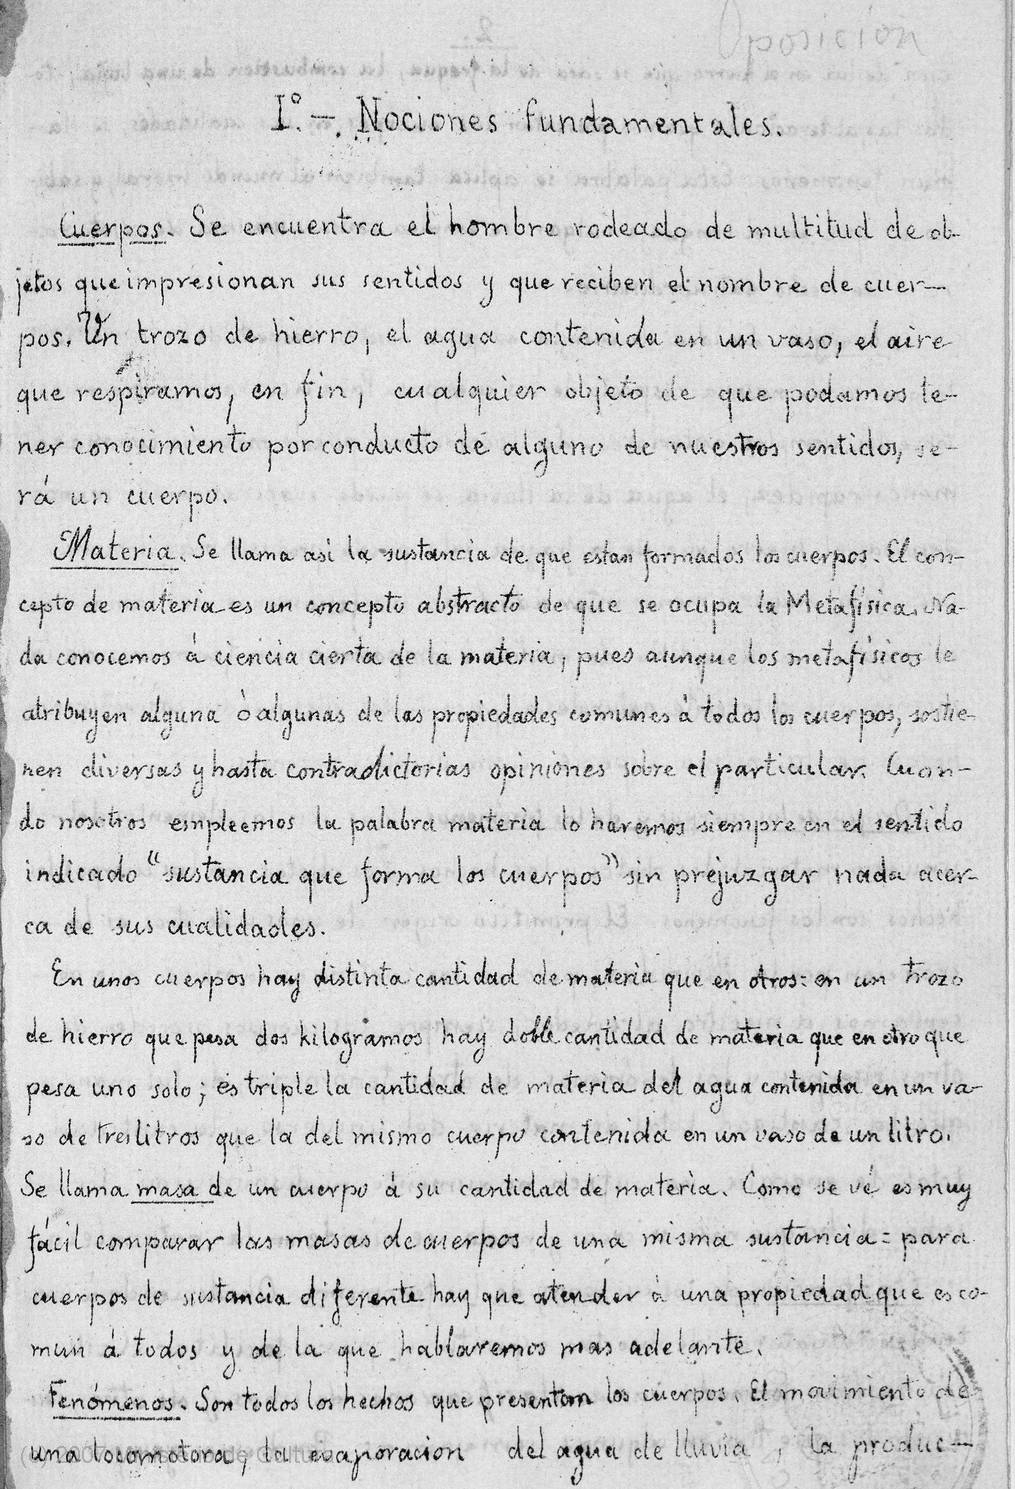 Oposición
I.º -. Nociones fundamentales.
Cuerpos. Se encuentra el hombre rodeado de multitud de ob-
jetos que impresionan sus sentidos y que reciben el nombre de cuer-
pos. Un trozo de hierro, el agua contenida en un vaso, el aire
que respiramos, en fin, cualquier objeto de que podamos te-
ner conocimiento por conducto de alguno de nuestros sentidos, se-
rá un cuerpo.
Materia. Se llama asi la sustancia de que estan formados los cuerpos. El con-
cepto de materia es un concepto abstracto de que se ocupa la Metafísica. Na-
da conocemos á ciencia cierta de la materia, pues aunque los metafísicos le
atribuyen alguna ò algunas de las propiedades comunes à todos los cuerpos, sostie-
nen diversas y hasta contradictorias opiniones sobre el particular. Cuan-
do nosotros empleemos la palabra materia lo haremos siempre en el sentido
indicado "sustancia que forma los cuerpos" sin prejuzgar nada acer-
ca de sus cualidades.
En unos cuerpos hay distinta cantidad de materia que en otros: en un trozo
de hierro que pesa dos kilogramos hay doble cantidad de materia que en otro que
pesa uno solo; es triple la cantidad de materia del agua contenida en un va-
so de tres litros que la del mismo cuerpo contenida en un vaso de un litro.
Se llama masa de un cuerpo á su cantidad de materia. Como se vé es muy
fácil comparar las masas de cuerpos de una misma sustancia: para
cuerpos de sustancia diferente hay que atender à una propiedad que es co-
mun á todos y de la que hablaremos mas adelante.
Fenómenos. Son todos los hechos que presentan los cuerpos. El movimiento de
una locomotora, la evaporacion del agua de lluvia, la produc-